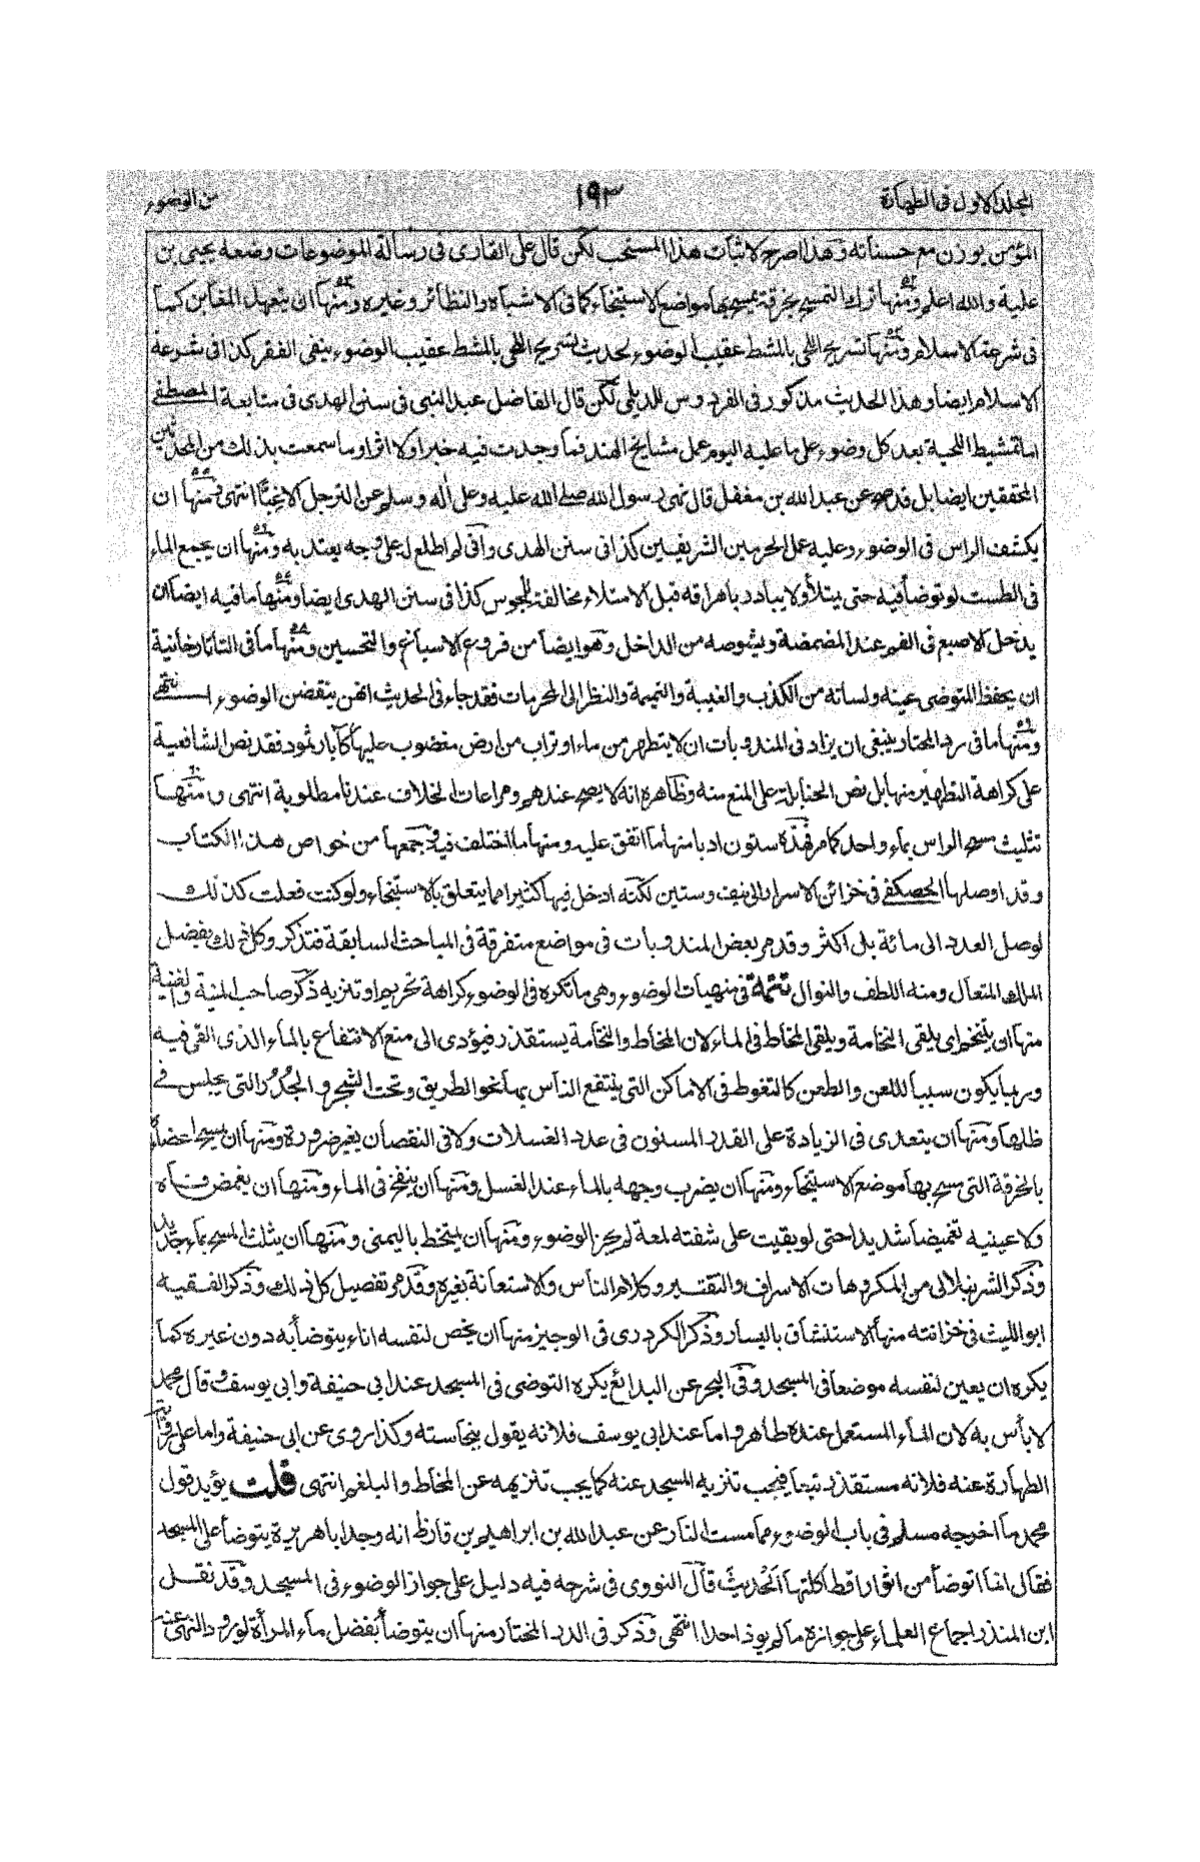 المجلد الاول فى الطهارة
١٩٣
من الوضوء
المؤمن يوزن مع حسناته وهذا اصرح لاثبات هذا المستحب لكن قال على القارى فى رسالة الموضوعات وضعه يحيى بن
علية والله اعلم ومنها ترك التمسح بخرقة يمسح بها مواضع الاستنجاء كما فى الاشباه والنظائر وغيره ومنها ان يتعهد المغابن كما
فى شرعة الاسلام ومنها تسريح اللحى بالمشط عقيب الوضوء لحديث تسريح اللحى بالمشط عقيب الوضوء ينفى الفقر كذا فى شرعة
الاسلام ايضا وهذا الحديث مذكور فى الفردوس للديلمى لكن قال الفاضل عبد النبى فى سنن الهدى فى متابعة المصطفى
اما تمشيط اللحية بعد كل وضوء على ما عليه اليوم عمل مشايخ الهند فما وجدت فيه خبرا ولا اثرا وما سمعت بذلك من المحدثين
المحققين ايضا بل قد صح عن عبد الله بن مغفل قال نهى رسول الله صلى الله عليه وعلى أله وسلم عن الترجل الا غبّا انتهى ومنها ان
يكشف الراس فى الوضوء وعليه عمل الحرمين الشريفين كذا فى سنن الهدى وانى لم اطلع له على وجه يعتد به ومنها ان يجمع الماء
فى الطست لو توضأ فيه حتى يمتلأ ولا يبادر باهراقه قبل الامتلاء مخالفة للمجوس كذا فى سنن الهدى ايضا ومنها ما فيه ايضا ان
يدخل الاصبع فى الفم عند المضمضة ويشوصه من الداخل وهو ايضا من فروع الاسباغ والتحسين ومنها ما فى التاتارخانية
ان يحفظ المتوضى عينه ولسانه من الكذب والغيبة والنميمة والنظر الى المحرمات فقد جاء فى الحديث انهن ينقضن الوضوء انتهى
ومنها ما فى رد المحتار ينبغى ان يزاد فى المندوبات ان لا يتطهر من ماء او تراب من ارض مغضوب عليها كآبار ثمود فقد نص الشافعية
على كراهة التطهير منها بل نص الحنابلة على المنع منه وظاهره انه لا يصح عندهم ومراعات الخلاف عندنا مطلوبة انتهى ومنها
تثليث مسح الراس بماء واحد كما مر فهذه ستون ادبا منها ما اتفق عليه ومنها ما اختلف فيه وجمعها من خواص هذا الكتاب
وقد اوصلها الحصكفى فى خزائن الاسرار الى نيف وستين لكنه ادخل فيها كثيرا مما يتعلق بالاستنجاء ولو كنت فعلت كذلك
لوصل العدد الى مائة بل اكثر وقد مر بعض المندوبات فى مواضع متفرقة فى المباحث السابقة فتذكر وكل ذلك بفضل
الملك المتعال ومنه اللطف والنوال تتمة فى منهيات الوضوء وهى ما تكره فى الوضوء كراهة تحريم او تنزيه ذكر صاحب المنية والغنية
منها ان يتنخط اى يلقى النخامة ويلقى المخاط فى الماء لان المخاط والنخامة يستقذر فيؤدى الى منع الانتفاع بالماء الذى القى فيه
وربما يكون سببا للعن والطعن كالتغوط فى الاماكن التى ينتفع الناس بها نحو الطريق وتحت الشجر والجُدُر التى يجلس فى
ظلها ومنها ان يتعدى فى الزيادة على القدر المسنون فى عدد الغسلات ولا فى النقصان بغير ضرورة ومنها ان يمسح اعضاءه
بالخرقة التى مسح بها موضع الاستنجاء ومنها ان يضرب وجهه بالماء عند الغسل ومنها ان ينفخ فى الماء ومنها ان يغمض فاه
ولا عينيه تغميضا شديدا حتى لو بقيت على شفته لمعة لم يجز الوضوء ومنها ان يتمخط باليمنى ومنها ان يثلث المسح بماء جديد
وذكر الشرنبلالى من المكروهات الاسراف والتقتير وكلام الناس والاستعانة بغيره وقد مر تفصيل كل ذلك وذكر الفقيه
ابو الليث فى خزانته منها الاستنشاق باليسار وذكر الكردرى فى الوجيز منها ان يخص لنفسه اناء يتوضأ به دون غيره كما
يكره ان يعين لنفسه موضعا فى المسجد وفى البحر عن البدائع يكره التوضى فى المسجد عند ابى حنيفة وابى يوسف وقال محمد
لا بأس به لان الماء المستعمل عنده طاهر واما عند ابى يوسف فلانه يقول بنجاسته وكذا روى عن ابى حنيفة واما على رواية
الطهارة عنه فلانه مستقذر تبعا فيجب تنزيه المسجد عنه كما يجب تنزيهه عن المخاط والبلغم انتهى قلت يؤيد قول
محمد ما اخرجه مسلم فى باب الوضوء مما مست النار عن عبد الله بن ابراهيم بن قارظ انه وجد ابا هريرة يتوضأ على المسجد
فقال انما اتوضأ من اثوار اقط اكلتها الحديث قال النووى فى شرحه فيه دليل على جواز الوضوء فى المسجد وقد نقل
ابن المنذر اجماع العلماء على جوازه ما لم يوذ احدا انتهى وذكر فى الدر المختار منها ان يتوضأ بفضل ماء المرأة لورود النهى عنه